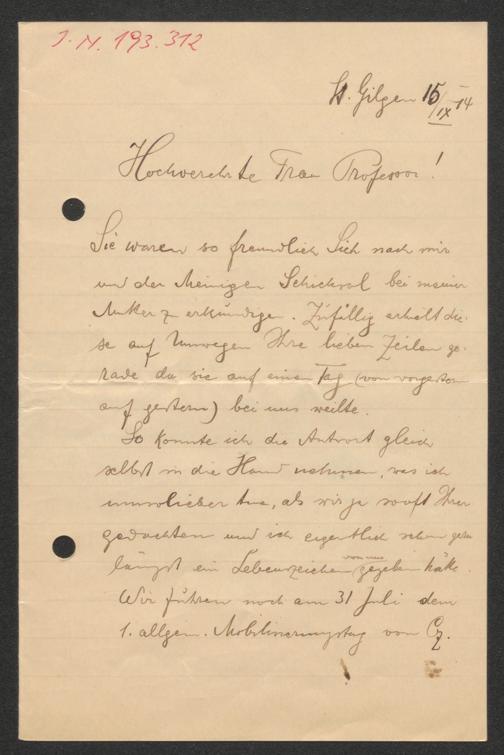 J. N. 193.312
St. Gilgen 15/IX 14
Hochverehrte Frau Professor!
Sie waren so freundlich Sich nach mir
und der Meinigen Schicksal bei meiner
Mutter z erkundigen. Zufällig erhielt die-
se auf Umwegen Ihre lieben Zeilen ge-
rade da sie auf einen Tag (von vorgestern
auf gestern) bei uns weilte.
So konnte ich die Antwort gleich
selbst in die Hand nehmen, was ich
umsolieber tue, als wir ja sooft Ihrer
gedachten und ich eigentlich schon gern
längst ein Lebenszeichen von uns gegeben hätte.
Wir fuhren noch am 31 Juli dem
1. allgem. Mobilisierungstag von Cz.